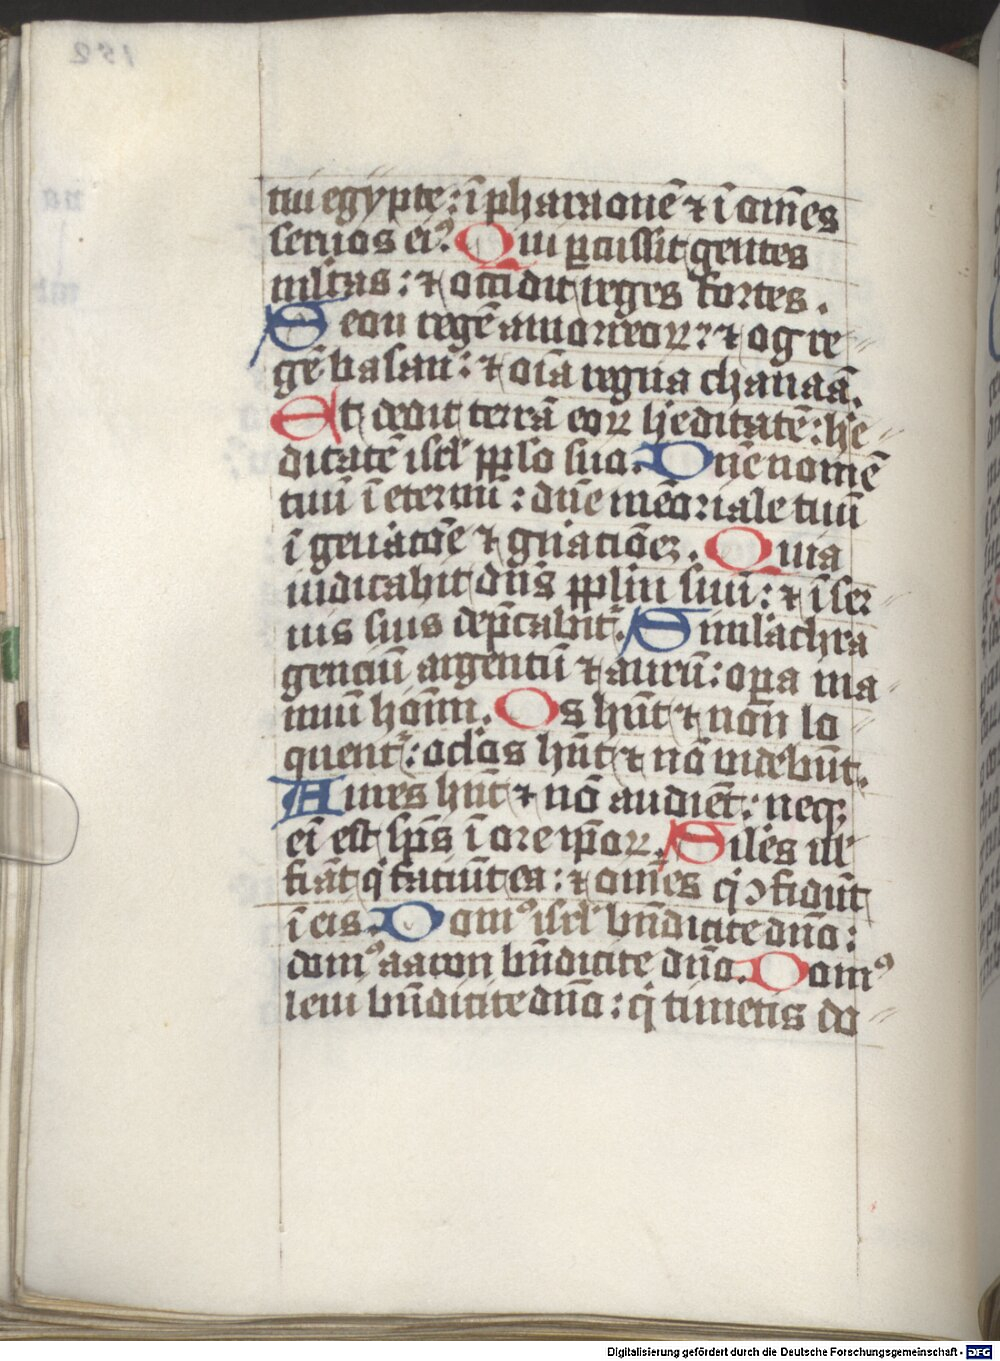 tui egypte: ī pharaonē ⁊ ī om̄es
seruos ei⁹. Qui ꝑcussit gentes
ml̄tas: ⁊ occidit reges fortes.
Seon regē amorreoꝝ: ⁊ og re〃
gē basan: ⁊ oīa regna chanaā.
Et dedit terrā eoꝝ h̄editatē: he〃
ditatē isrl̄ pp̄lo suo. Dn̄e nomē
tuū ī eternū: dn̄e mēoriale tuū
ī gen̄atōē ⁊ gn̄atiōeꝫ. Quia
iudicabit dn̄s pp̄lm̄ suū: ⁊ ī ser
uis suis dep̄cabit᷑. Simlachra
genciū argentū ⁊ aurū: oꝑa ma〃
nuū hōim̄. Os hn̄t ⁊ non lo〃
quent᷑: oc̄los hn̄t ⁊ nō videbūt.
Aures hn̄t ⁊ nō audiēt: neqꝫ
eī est sp̄s ī ore ip̄oꝝ. Sil̄es ill̄
fiāt q̄ faciūt ea: ⁊ om̄es q̄ ↄfidūt
ī eis. Dom⁹ isrl̄ bn̄dicite dn̄o:
dom⁹ aaron bn̄dicite dn̄o. Dom⁹
leui bn̄dicite dn̄o: q̄ timetis do〃
Digitalisierung gefördert durch die Deutsche Forschungsgemeinschaft - DFG